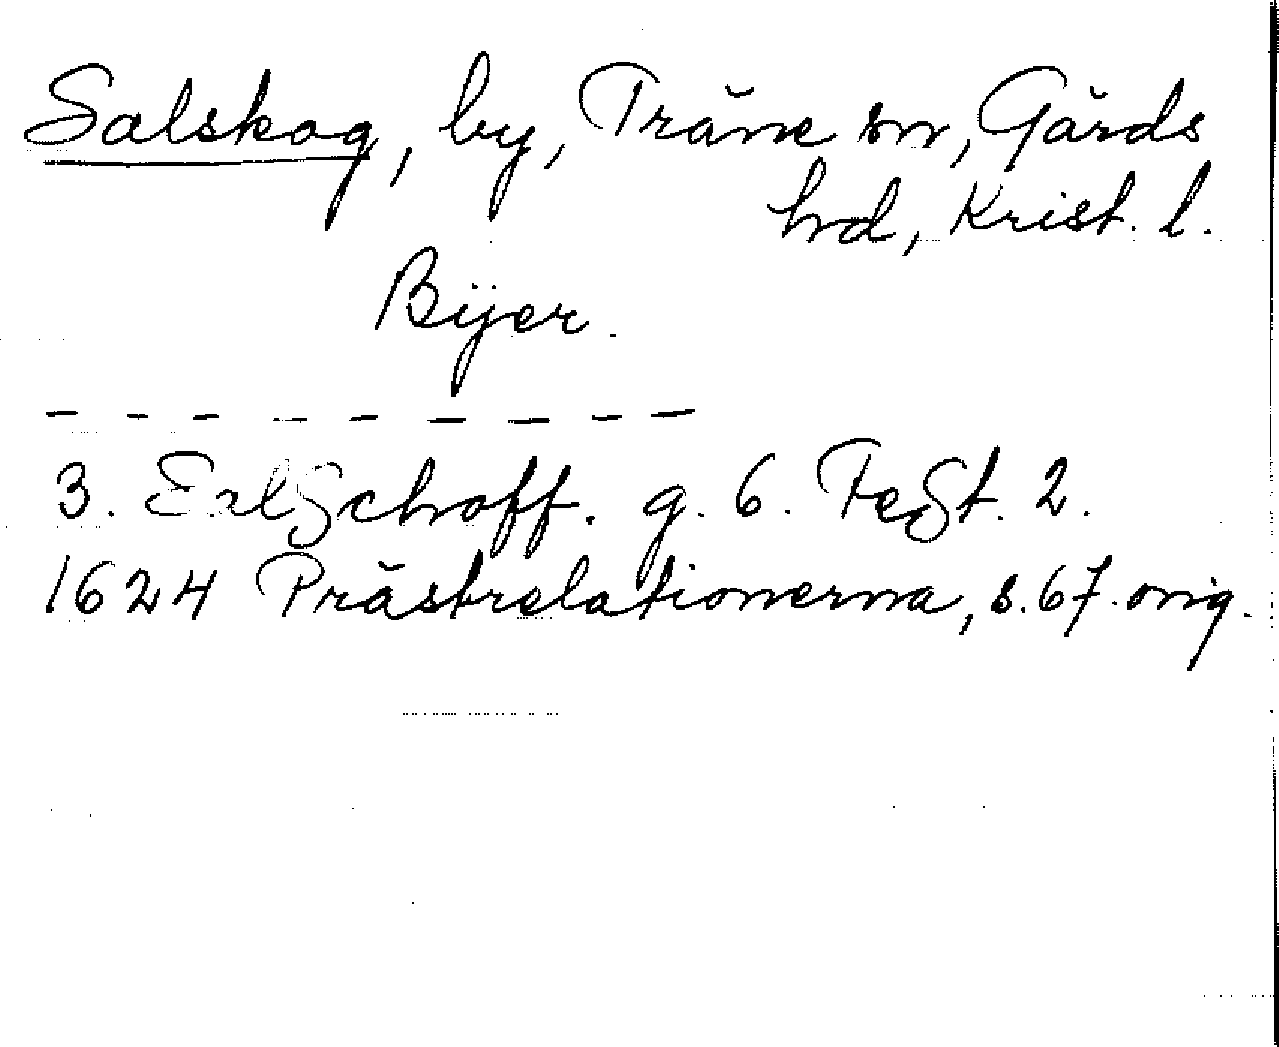 Salskog, by, Träne sn, Gärds
hd, Krist. l.
Bÿer.
3. Salschoff. g. 6. Fest. 2.
1624 Prästrelationerna, s. 67. orig.